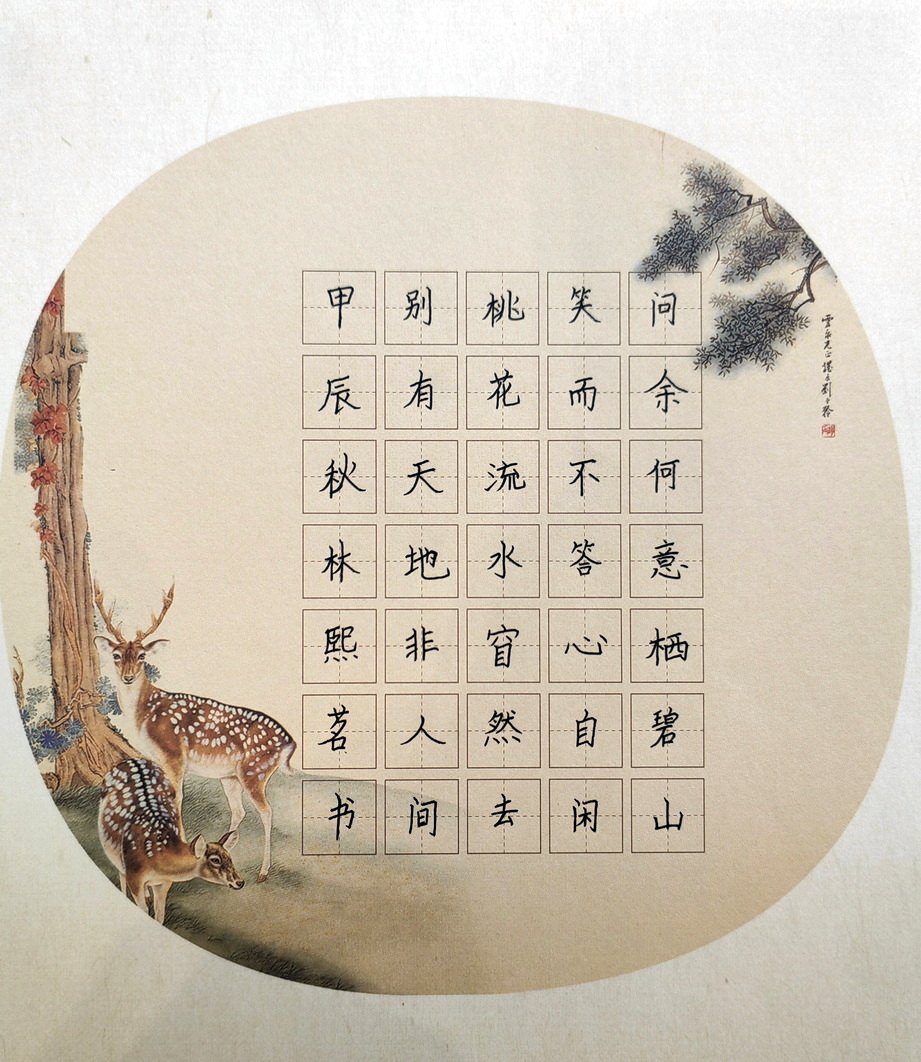 问余何意栖碧山
笑而不答心自闲
桃花流水窅然去
别有天地非人间
甲辰秋林熙茗书